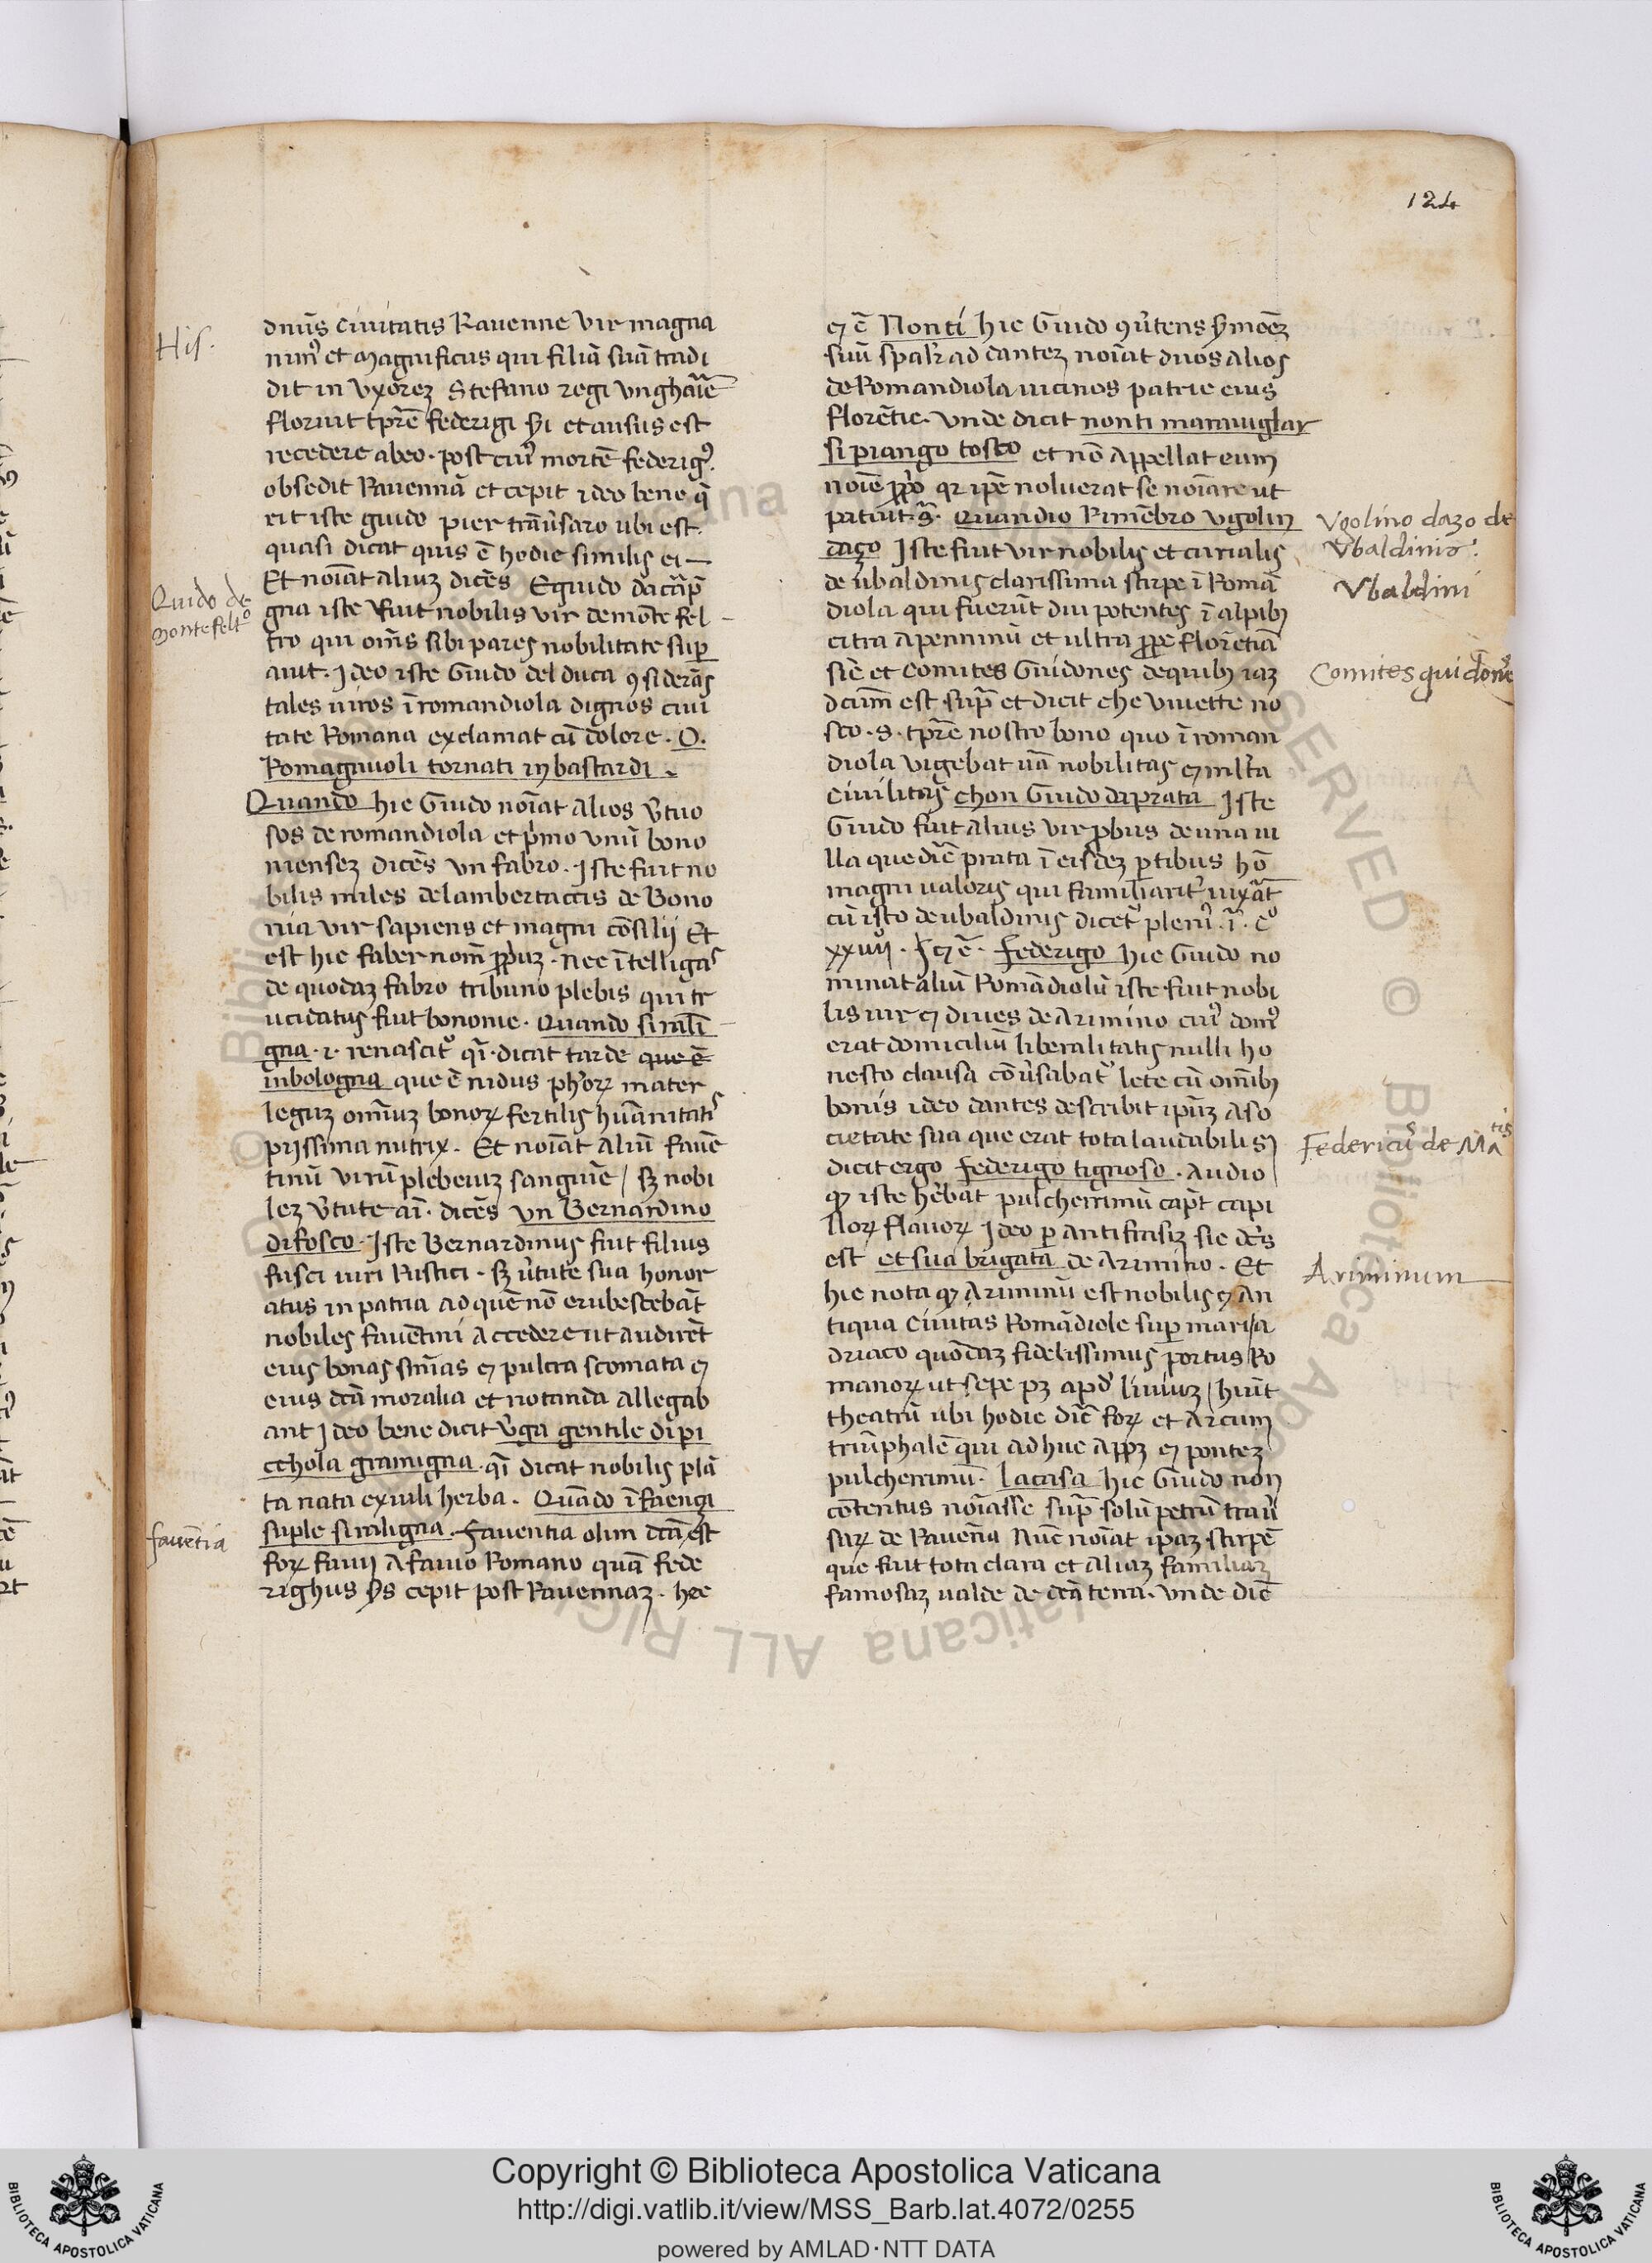 124
His.
dnūs Ciuitatis Rauenne Vir magna
nimꝰ et Magnificus qui filiā suā tradi
dit in vxorez Stefano regi vnghaīe
floruit tpr̄e federigi s̄i et ausus est
recedere abeo. post cuiꝰ mortē federigꝰ.
obsedit Rauennā et cepit ideo bene q̄
rit iste guido pier trāusaro ubi est.
quasi dicat quis ē hodie similis ei —
Et noīat aliuz dicēs Eguido dacāp̄
Guido de
montefeltº
gna iste fuit nobilis vir demōte fel
tro qui om̄s sibi pares nobilitate sup̄
auit. Ideo iste Guido del duca ꝯsiderās
tales uiros ī romandiola dignos ciui
tate Romana exclamat cū dolore. O.
Romagniuoli tornati in bastardi.
Quando hic Guido noīat alios v̄tuo
sos de romandiola et pͥmo vnū bono
niensez dicēs vn fabro. Iste fuit no
bilis miles delambertaccis de Bono
nia vir sapiens et magni cōsilij Et
est hic faber nom̄ ꝓpͥuz. nec ītelligas
de quodaz fabro tribuno plebis qui tr
ucidatus fuit bononie. Quando siralī
gna .i. renascitͬ qī dicat tarde que ē
inbologna que ē nidus ph̄orꝝ mater
leguz omīuz bonorꝝ fertilis hūanitatis
pijssima nutrix. Et noīat aliū fauē
tinū virū plebeiuz sanguīe / sꝫ nobi
lez v̄tute aī. dicēs vn Bernardino
difosco. Iste Bernardinus fuit filius
fusci uiri Rustici. sꝫ v̄tute sua honor
atus in patria ad quē nō erubescebāt
nobiles fauentini accedere ut audirēt
eius bonas sn̄ias ⁊ pulcra scomata ⁊
eius dcā moralia et notanda allegab
ant Ideo bene dicit v̄ga gentile di pi
cchola gramigna. qī dicat nobilis plā
ta nata exuili herba. Quādo ī faenzi
fauētia
suple siraligna. Fauentia olim dcā est
forꝝ fauij a fauio Romano quā fede
righus s̄s cepit post Rauennaz. hec
⁊ ē Nonti hic Guido ꝯūtens s̄moēz
suū spal̄r ad dantez noīat duos alios
de Romandiola uicinos patrie eius
florētie. vnde dicit nonti marauiglar
si piango tosco et nō appellat eum
noīe ꝓpͥo qꝛ ip̄e noluerat se noīare ut
patuit sͣ. Quandio Rimēbro vgolin
Vgolino dazo de
Vbaldinis.
dazo Iste fuit vir nobilis et curialis
Vbaldini
de ubaldinis clarissima stirpe ī Romā
diola qui fuerūt diu potentes ī alpibꝫ
citra apenninū et ultra ꝓpe florētiā
Comites guidones
sic et Comites Guidones dequibꝫ iaz
dcūm est sup̄ et dicit che viuette no
sco. s. tpr̄e nostro bono quo ī roman
diola vigebat uā nobilitas ⁊ mlͭa
ciuilitas chon Guido daprata Iste
Guido fuit alius vir ꝓbus de una ui
lla que dr̄ prata ī eisdez ꝑtibus hō
magni ualoris qui familiaritͬ uixāt
cū isto deubaldinis dicetͬ pleniꝰ. ī. cº
xxuij. Seqͭ. Federigo hic Guido no
minat aliū Romādiolū iste fuit nobi
lis uir ⁊ diues de Arimino cuiꝰ domꝰ
erat domiciliū liberalitatis nulli ho
nesto clausa cōūsabatͬ lete cū om̄ibꝫ
bonis ideo dantes describit ipūz aso
Federicus de Matis
cietate sua que erat tota laudabilis
dicit ergo federigo tignoso. Audio
ꝙ iste hēbat pulcherrimū capͭ capi
llorꝝ flauorꝝ Ideo ꝑ antifrasiz sic dc̄s
est et sua brigata de Arimino. Et
Ariminum
hic nota ꝙ Ariminū est nobilis ⁊ an
tiqua Ciuitas Romādiole sup̄ mari a
driaco quōdaz fidelissimus portus Ro
manorꝝ ut sepe pꝫ apd̄ liuiuz / hūit
theatrū ubi hodie dr̄ forꝝ et Arcum
triūphalē qui ad huc appꝫ ⁊ pontez
pulcherrimū. la casa hic Guido non
cōtentus noīasse sup̄ solū petrū trau̇
sarꝝ de Rauēna Nūc noīat ipaz stirpē
que fuit tota clara et aliaz familiaz
famosaz ualde de dcā terra. vn de dic̄
Copyright © Biblioteca Apostolica Vaticana
http://digi.vatlib.it/view/MSS_Barb.lat.4072/0255
powered by AMLAD·NTT DATA
BIBLIOTECA APOSTOLICA VATICANA
BIBLIOTECA APOSTOLICA VATICANA